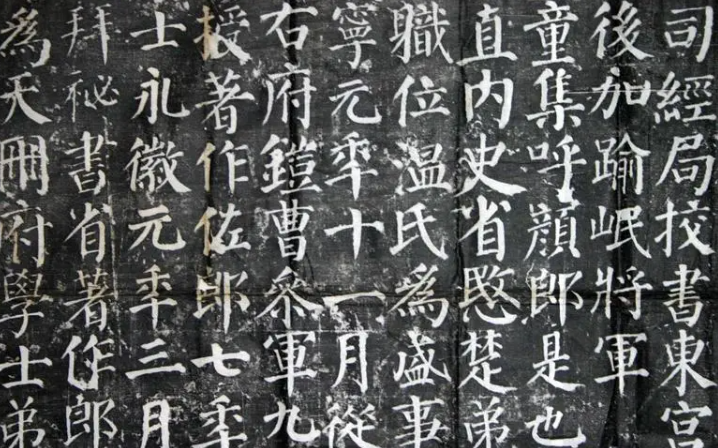 司經局校書東宮
後加踰岷將軍
童集呼顏郎是也
直内史省愍楚弟
職位温氏爲盛事
寧元年十一月從
右府鎧曹叅軍九
授著作佐郎七年
士永徽元年三月
拜祕書省著作郎
爲天冊府學士弟